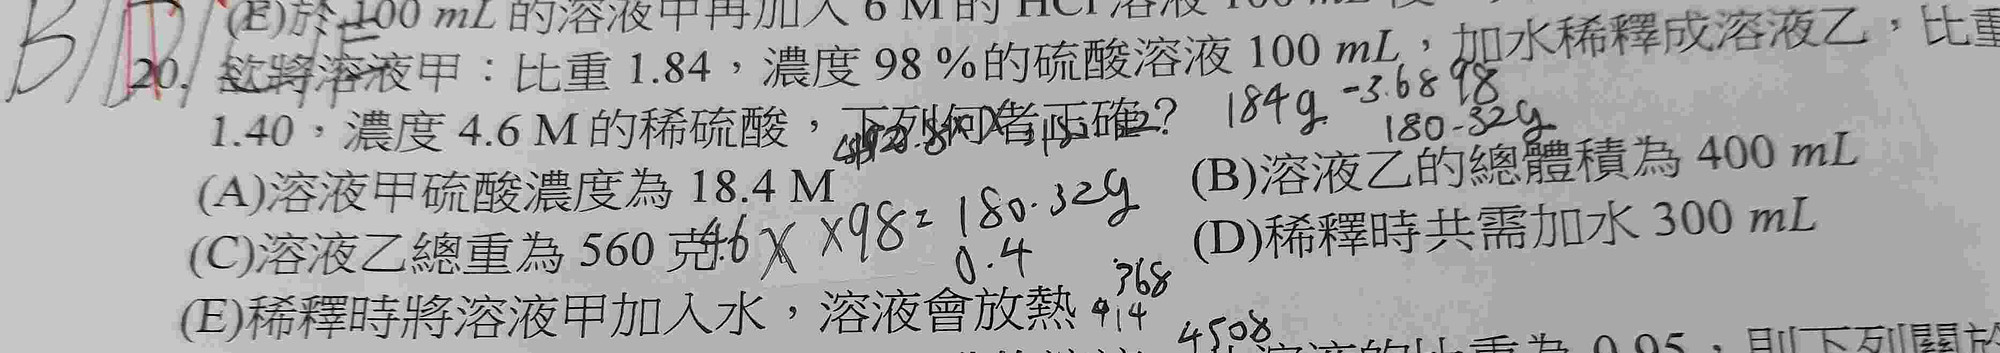 (E)於 100 mL 的溶液中再加入 6 M 的 HCl 溶液 100 mL
20. 欲將溶液甲：比重 1.84，濃度 98 %的硫酸溶液 100 mL，加水稀釋成溶液乙，比重
1.40，濃度 4.6 M 的稀硫酸，下列何者正確？ 184g -3.68 98
180.32g
(A)溶液甲硫酸濃度為 18.4 M (B)溶液乙的總體積為 400 mL
4.6 X ×98= 180.32g
0.4
(C)溶液乙總重為 560 克 (D)稀釋時共需加水 300 mL
(E)稀釋時將溶液甲加入水，溶液會放熱
368
4508
溶液的比重為 0.95，則下列關於